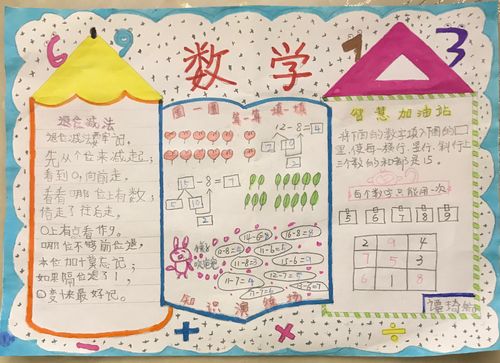 6 9 数学 7 3
退位减法
退位减法要牢记,
先从个位来减起;
看到0,向前走,
看看哪位上有数;
借走了往右走,
0上有点看作9。
哪位不够前位退,
本位加十莫忘记;
如果隔位退了1,
0变十来最好记。
圈一圈 算一算 填一填
12-8=4
2 10
2
15-8=7
5 10
2
14-6=8
16-8=8
11-8=3
11-6=5
11-8=3
15-6=9
11-7=4
12-7=5
13-6=7
知识演练场
智慧加油站
将下面的数字填入圈的□
里,使每一横行、竖行、斜行上
三个数的和都是15。
每个数字只能用一次
5 6 7 8 9
2 9 4
7 5 3
6 1 8
- + × ÷